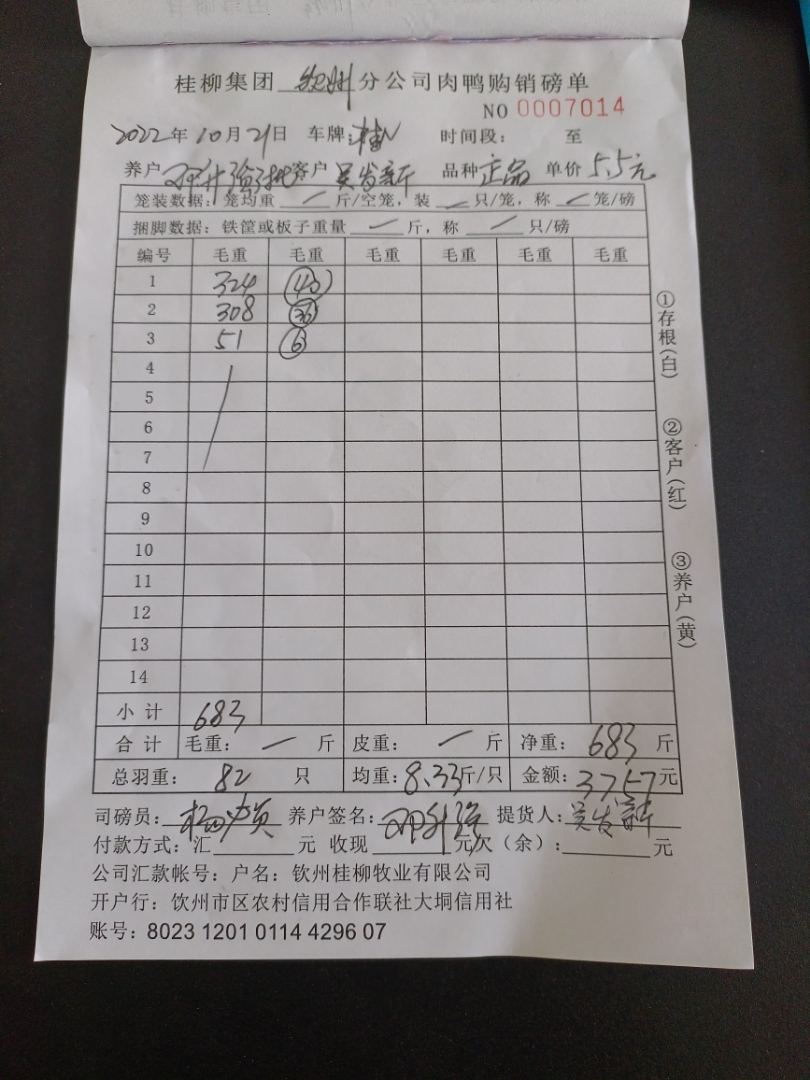 桂柳集团 钦州 分公司肉鸭购销磅单
NO 0007014
2022年10月21日 车牌: 时间段: 至
养户 邓升强 客户 吴发新 品种 正品 单价 5.5元
笼装数据: 笼均重 — 斤/空笼, 装 — 只/笼, 称 — 笼/磅
捆脚数据: 铁筐或板子重量 — 斤, 称 — 只/磅
编号 毛重 毛重 毛重 毛重 毛重 毛重
1 324 (40)
2 308 (36)
3 51 (6)
4
5
6
7
8
9
10
11
12
13
14
小计 683
合计 毛重: — 斤 皮重: — 斤 净重: 683 斤
总羽重: 82 只 均重: 8.33斤/只 金额: 3757元
司磅员: 养户签名: 邓升强 提货人: 吴发新
付款方式: 汇 元 收现 元/欠(余): 元
公司汇款帐号: 户名: 钦州桂柳牧业有限公司
开户行: 钦州市区农村信用合作联社大垌信用社
账号: 8023 1201 0114 4296 07
①存根(白)
②客户(红)
③养户(黄)